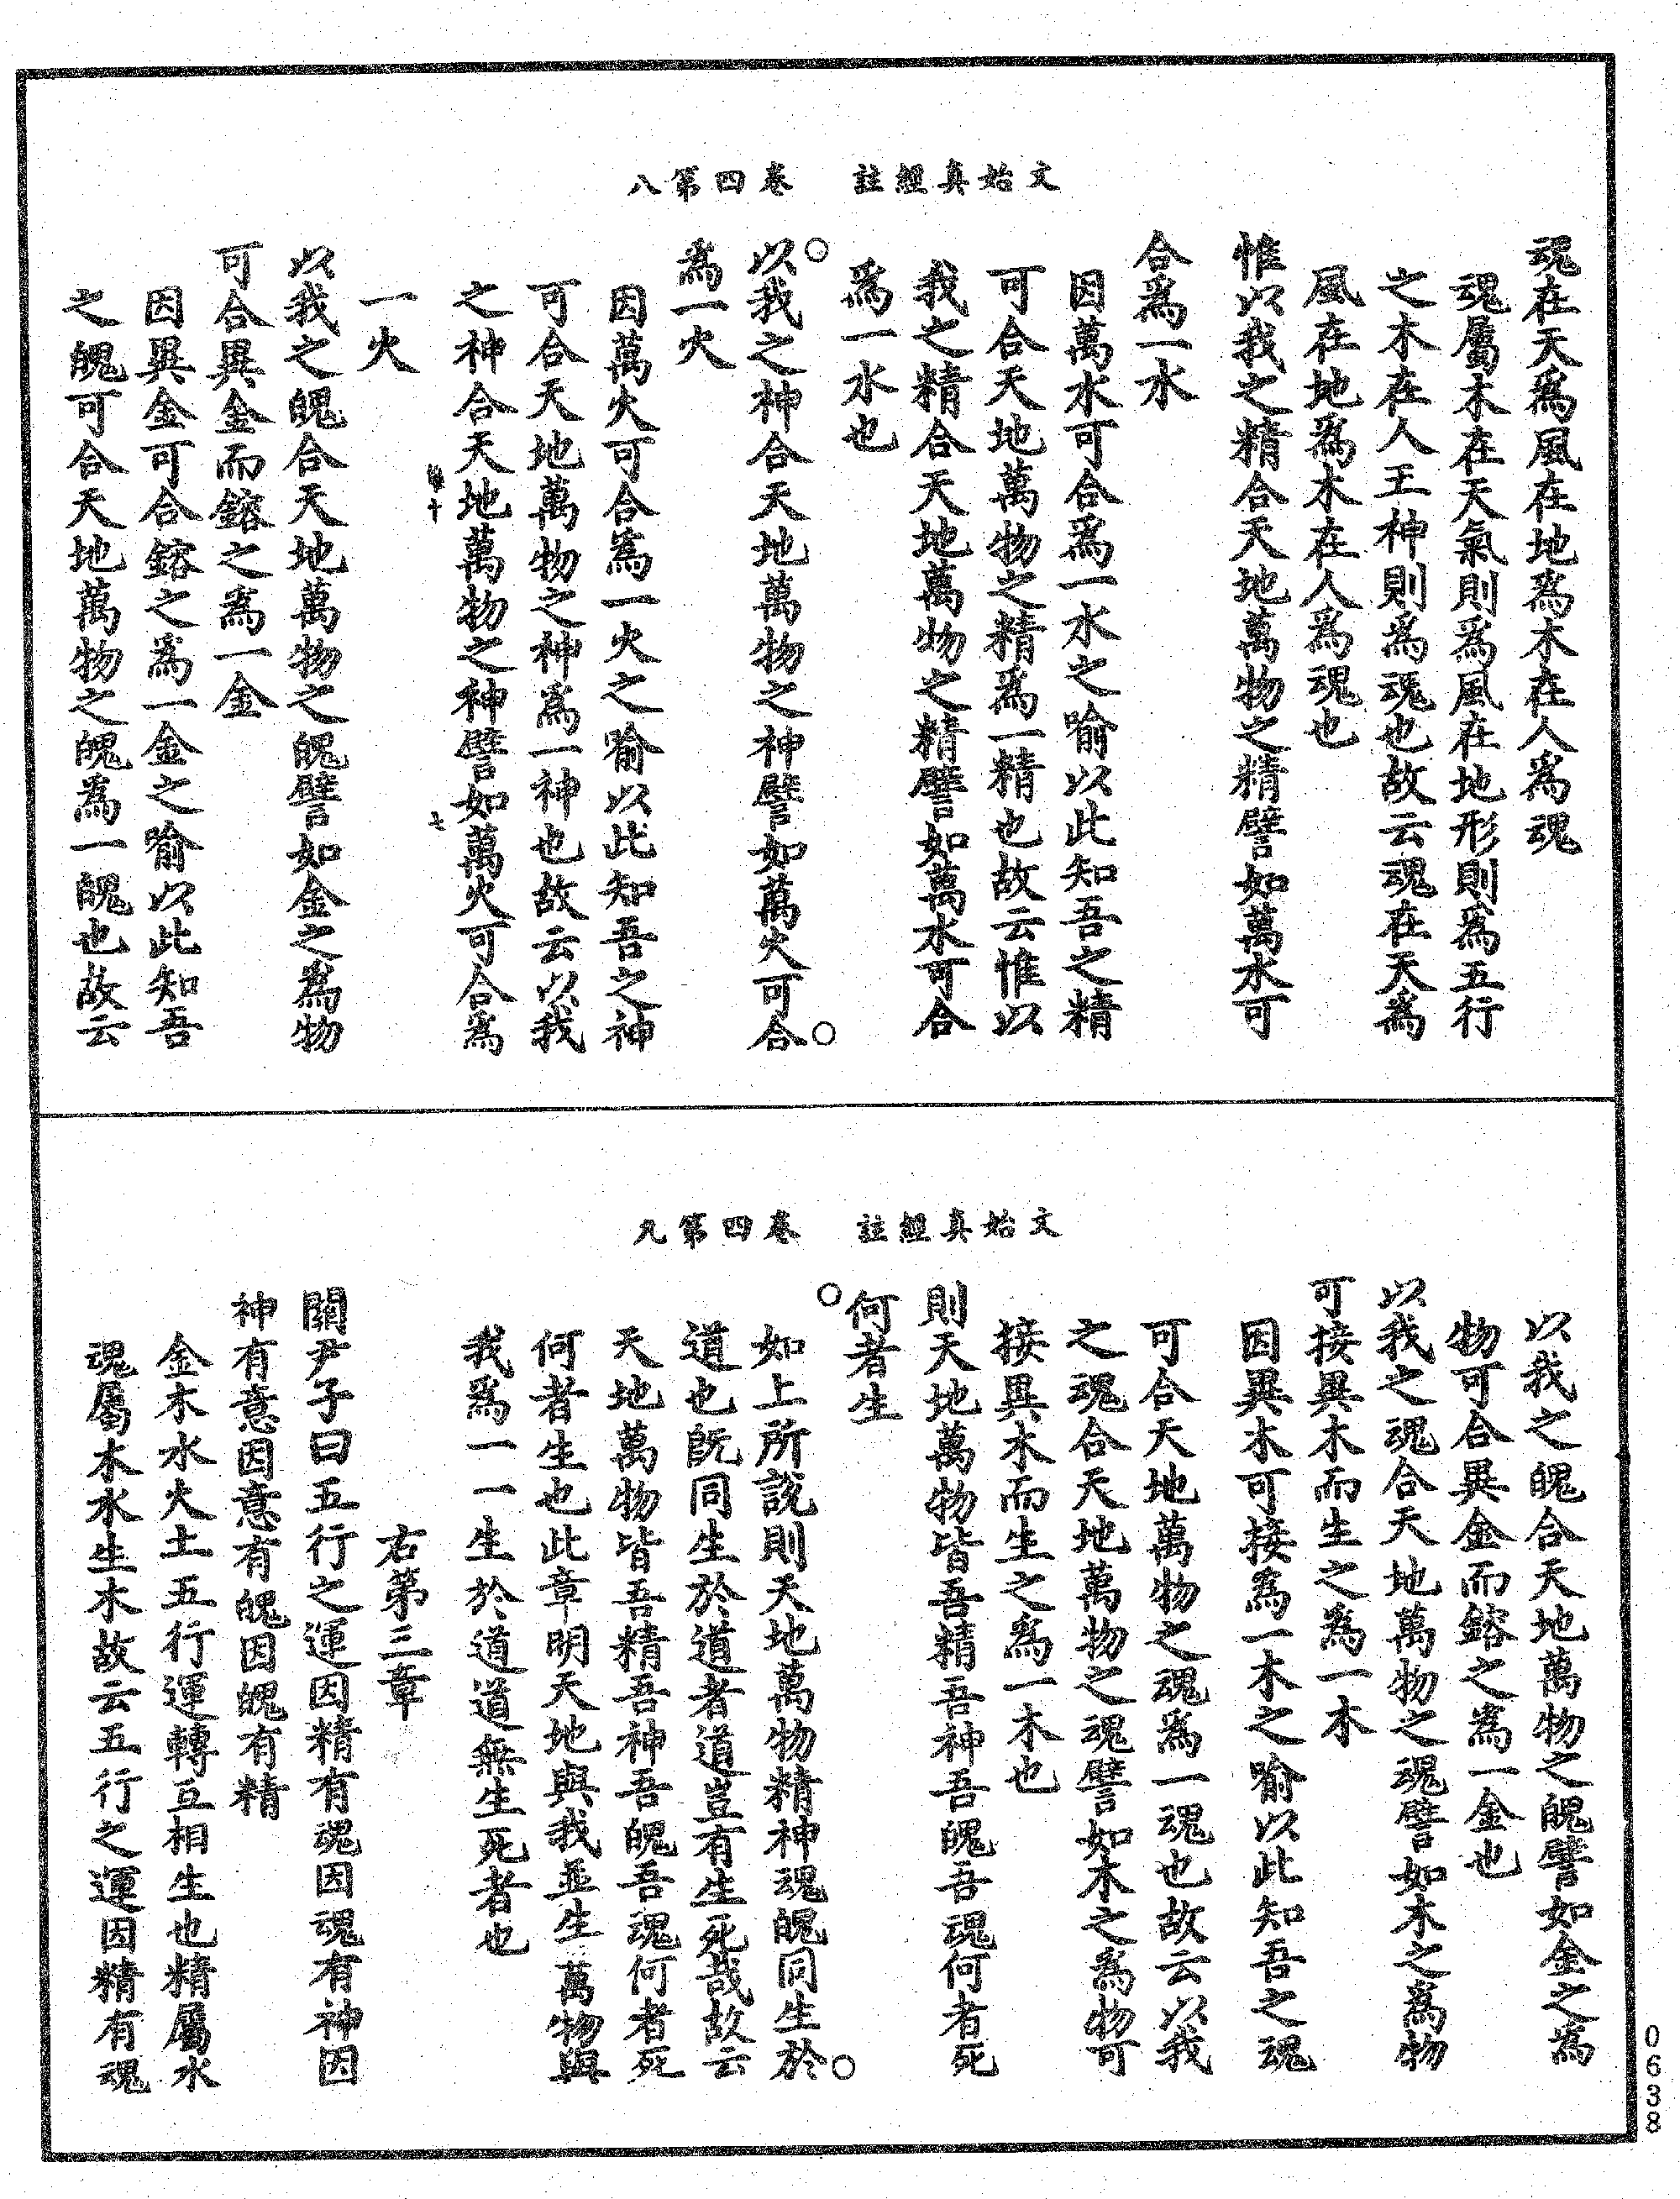 文始真經註　卷四第八
魂在天爲風在地爲木在人爲魂
魂屬木在天氣則爲風在地形則爲五行
之木在人王神則爲魂也故云魂在天爲
風在地爲木在人爲魂也
惟以我之精合天地萬物之精譬如萬水可
合爲一水
因萬水可合爲一水之喻以此知吾之精
可合天地萬物之精爲一精也故云惟以
我之精合天地萬物之精譬如萬水可合
爲一水也
以我之神合天地萬物之神譬如萬火可合
爲一火
因萬火可合爲一火之喻以此知吾之神
可合天地萬物之神爲一神也故云以我
之神合天地萬物之神譬如萬火可合爲
一火
以我之魄合天地萬物之魄譬如金之爲物
可合異金而鎔之爲一金
因異金可合鎔之爲一金之喻以此知吾
之魄可合天地萬物之魄爲一魄也故云
文始真經註　卷四第九
以我之魄合天地萬物之魄譬如金之爲
物可合異金而鎔之爲一金也
以我之魂合天地萬物之魂譬如木之爲物
可接異木而生之爲一木
因異木可接爲一木之喻以此知吾之魂
可合天地萬物之魂爲一魂也故云以我
之魂合天地萬物之魂譬如木之爲物可
接異木而生之爲一木也
則天地萬物皆吾精吾神吾魄吾魂何者死
何者生
如上所說則天地萬物精神魂魄同生於
道也旣同生於道者道豈有生死哉故云
天地萬物皆吾精吾神吾魄吾魂何者死
何者生也此章明天地與我並生萬物與
我爲一一生於道道無生死者也
右第三章
關尹子曰五行之運因精有魂因魂有神因
神有意因意有魄因魄有精
金木水火土五行運轉互相生也精屬水
魂屬木水生木故云五行之運因精有魂
0638